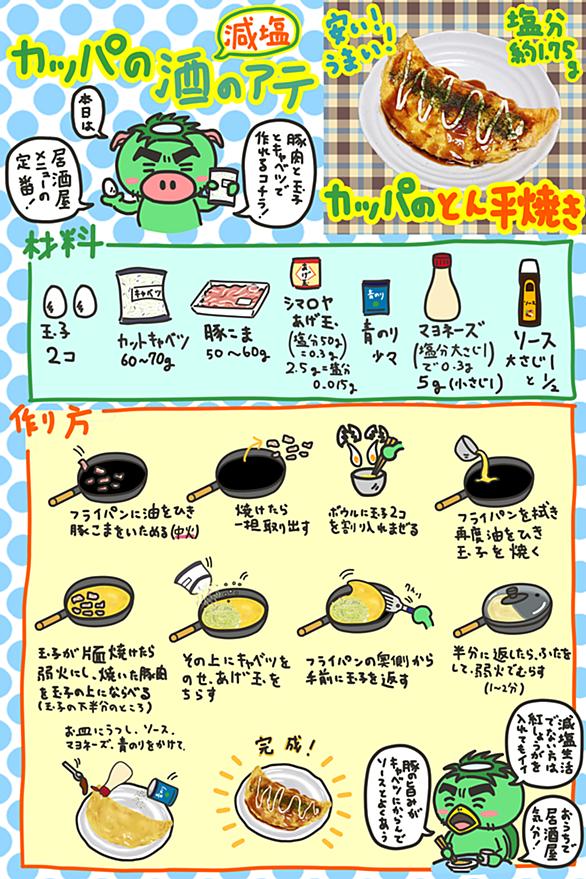 減塩
カッパの酒のアテ
本日は
居酒屋
メニューの
定番！
豚肉と玉子
とキャベツで
作れるコチラ！
安い！
うまい！
塩分
約1.75g
カッパのとん平焼き
材料
玉子
2コ
キャベツ
カットキャベツ
60～70g
豚こま
50～60g
あげ玉
シマロヤ
あげ玉
(塩分50g
=0.3g)
2.5g=塩分
0.015g
青のり
青のり
少々
マヨネーズ
(塩分大さじ1
で0.3g)
5g(小さじ1)
ソース
ソース
大さじ1
と1/2
作り方
フライパンに油をひき
豚こまをいためる(中火)
焼けたら
一担取り出す
ボウルに玉子2コ
を割り入れまぜる
フライパンを拭き
再度油をひき
玉子を焼く
玉子が片面焼けたら
弱火にし、焼いた豚肉
を玉子の上にならべる
(玉子の下半分のところ)
その上にキャベツを
のせ、あげ玉を
ちらす
フライパンの奥側から
手前に玉子を返す
半分に返したら、ふたを
して、弱火でむらす
(1～2分)
お皿にうつし、ソース、
マヨネーズ、青のりをかけて、
完成！
豚の旨みが
キャベツにからんで
ソースとよくあう
減塩生活
でない方は
紅しょうがを
入れてもイイ
おうちで
居酒屋
気分！